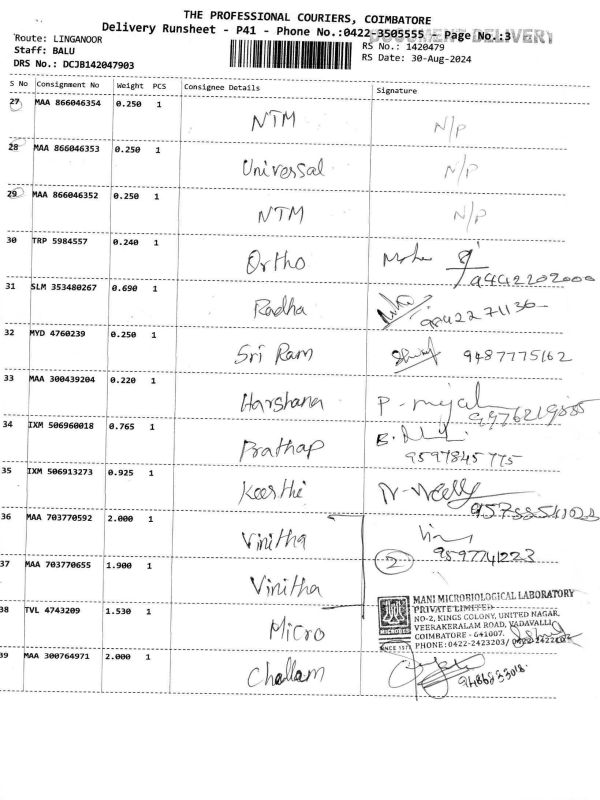 THE PROFESSIONAL COURIERS, COIMBATORE
Delivery Runsheet - P41 - Phone No.:0422-3505555 - Page No.:3
DOCUMENT DELIVERY
Route: LINGANOOR
RS No.: 1420479
Staff: BALU
RS Date: 30-Aug-2024
DRS No.: DCJB142047903
S No Consignment No Weight PCS Consignee Details Signature
27 MAA 866046354 0.250 1 NTM N/P
28 MAA 866046353 0.250 1 Universal N/P
29 MAA 866046352 0.250 1 NTM N/P
30 TRP 5984557 0.240 1 Ortho 9442202000
31 SLM 353480267 0.690 1 Radha 9842271136
32 MYD 4760239 0.250 1 Sri Ram 9487775162
33 MAA 300439204 0.220 1 Harshana P.
34 IXM 506960018 0.765 1 Prathap 9597845775
35 IXM 506913273 0.925 1 Keerthi
36 MAA 703770592 2.000 1 Vinitha 9597741223
2
37 MAA 703770655 1.900 1 Vinitha
38 TVL 4743209 1.530 1 Micro
MANI MICROBIOLOGICAL LABORATORY
PRIVATE LIMITED
NO-2, KINGS COLONY, UNITED NAGAR,
VEERAKERALAM ROAD, VADAVALLI,
COIMBATORE - 641007.
SINCE 1971 PHONE: 0422-2423203/
39 MAA 300764971 2.000 1 Challam